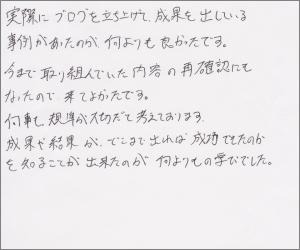 実際にブログを立ち上げて、成果を出している
事例があったのが、何よりも良かったです。
今まで取り組んでいた内容の再確認にも
なったので 来てよかったです。
何事も、規準が大切だと考えております。
成果や結果が、どこまで出れば成功できたのか
を知ることが出来たのが 何よりもの学びでした。